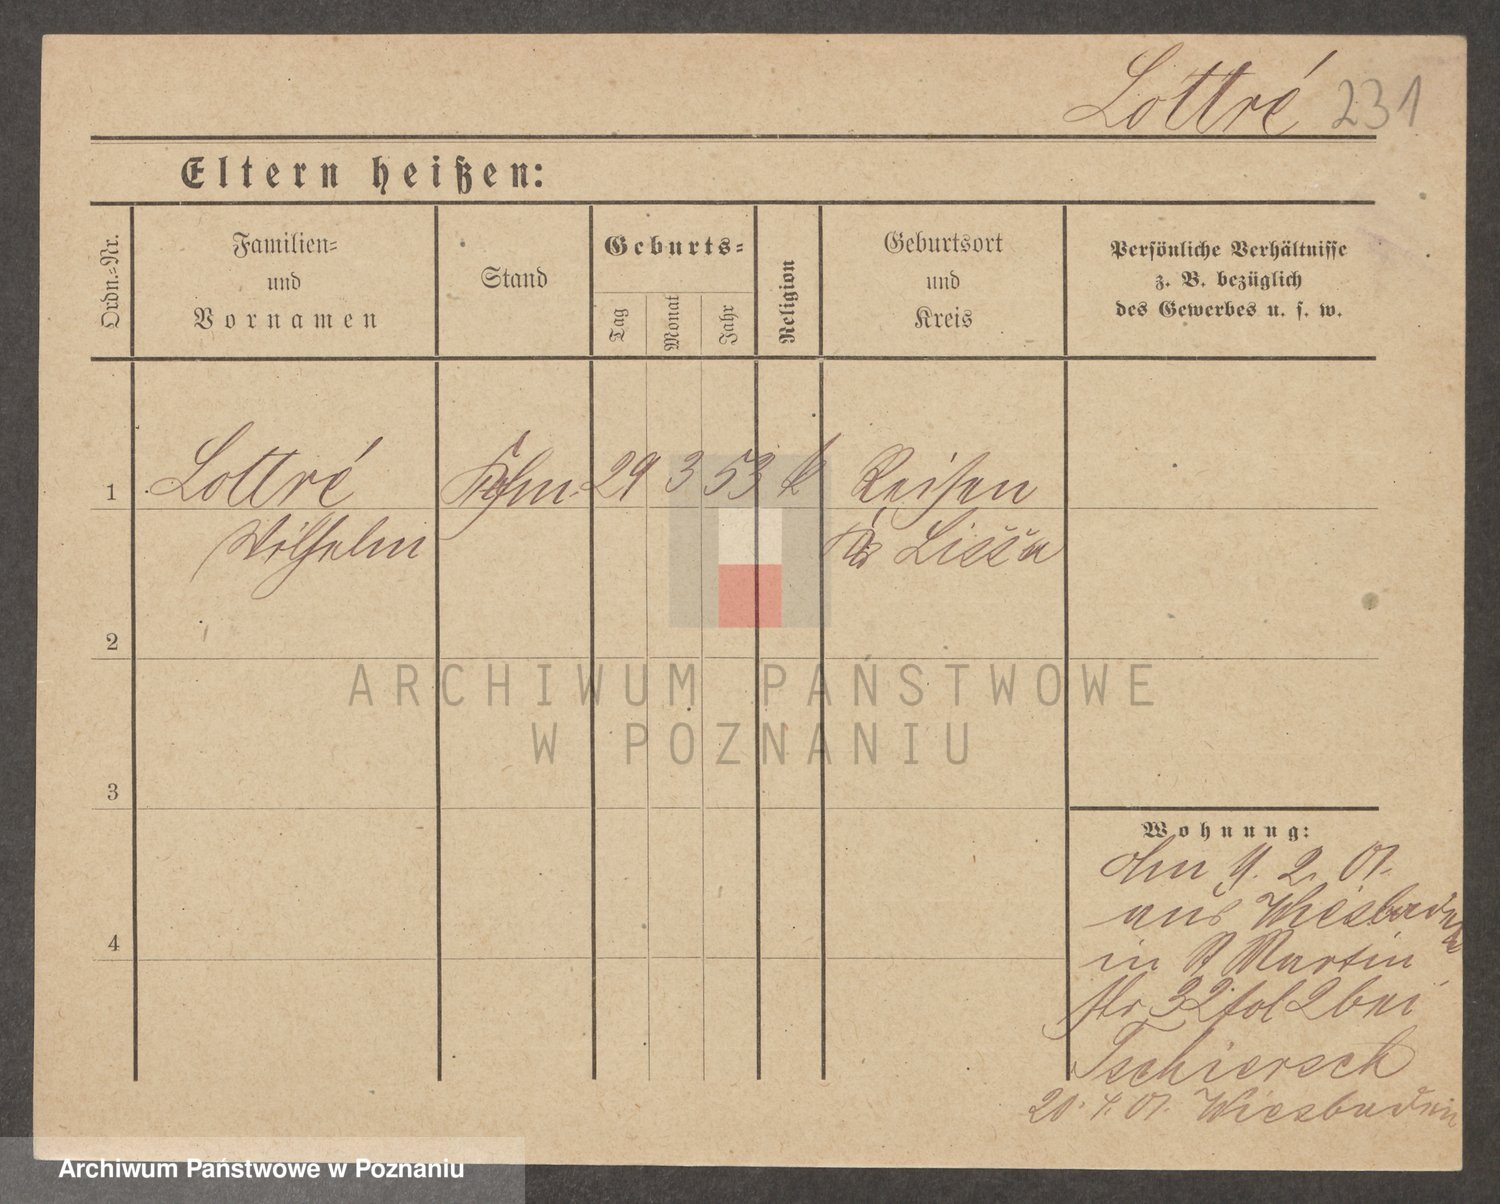 Lottré 231
Eltern heißen:
Ordn.-Nr.
Familien-
und
Vornamen
Stand
Geburts-
Tag
Monat
Jahr
Religion
Geburtsort
und
Kreis
Persönliche Verhältnisse
z. B. bezüglich
des Gewerbes u. s. w.
1 Lottré Kfm. 29 3 53 k Reisen
Wilhelm Krs Lissa
2
ARCHIWUM PAŃSTWOWE
W POZNANIU
3
Wohnung:
9. 2. 01.
aus Wiesbaden
4
in St Martin
str 32 fol 2 bei
Tschiersch
20. 4. 01. Wiesbaden
Archiwum Państwowe w Poznaniu